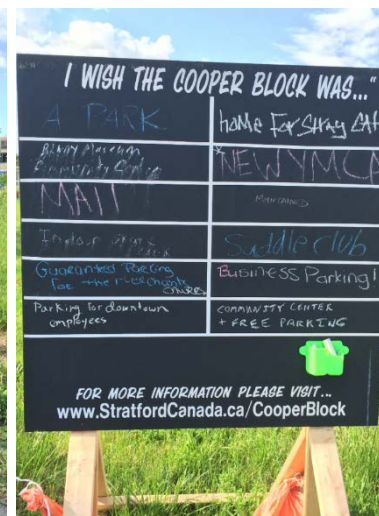 I WISH THE COOPER BLOCK WAS..."
A PARK
home For Stray CAt
Museum
Community
NEW YMCA
MAll
MAINTAINED
Indoor
Saddle club
Guaranteed Parking
for the merchants
Business Parking!
Parking for downtown
employees
COMMUNITY CENTER
+ FREE PARKING
FOR MORE INFORMATION PLEASE VISIT...
www.StratfordCanada.ca/CooperBlock